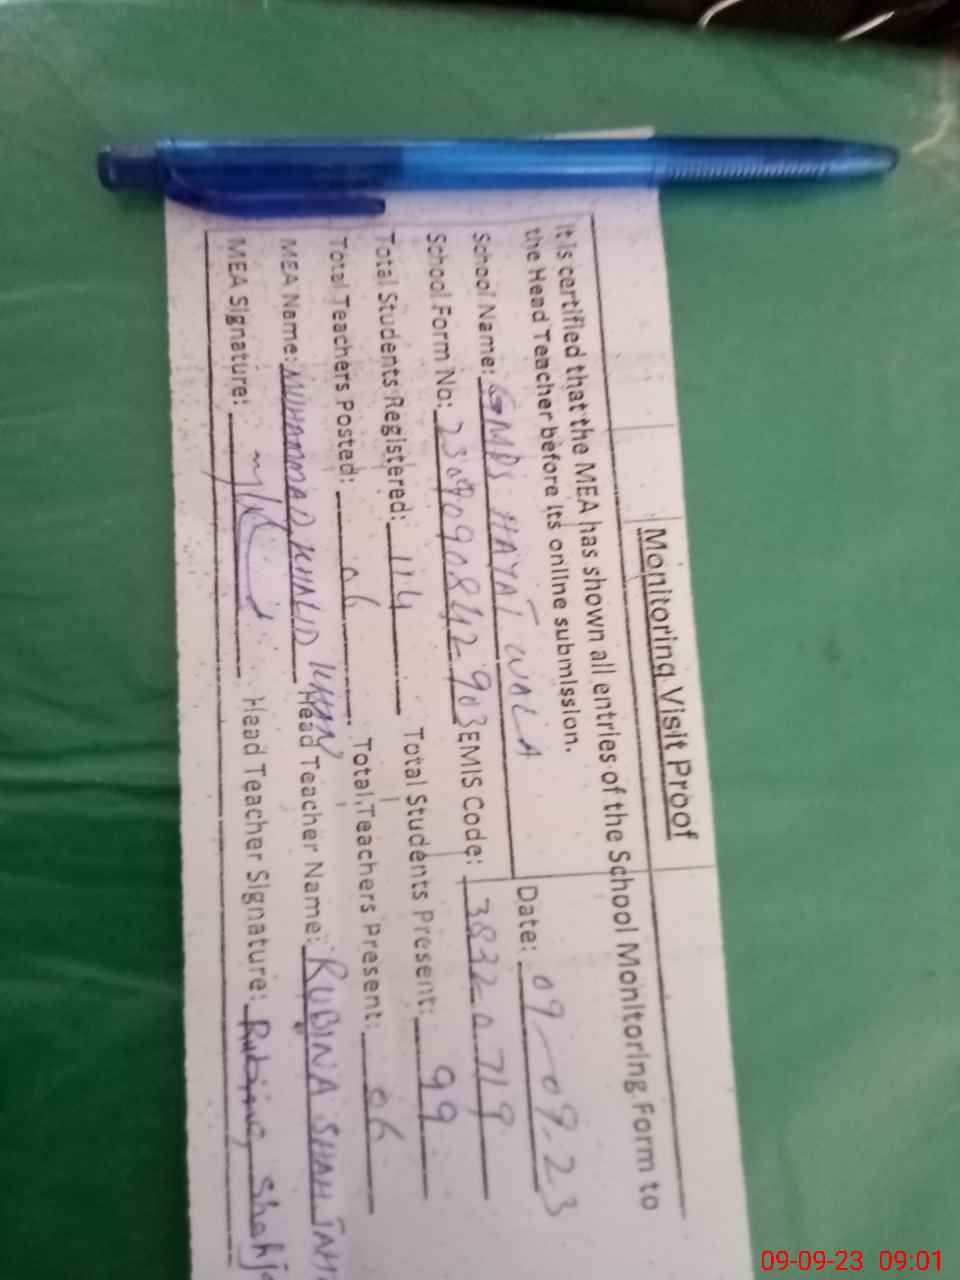 Monitoring Visit Proof
It is certified that the MEA has shown all entries of the School Monitoring Form to
the Head Teacher before its online submission.
Date: 09-09-23
School Name: GMPS HAYAT WALA
School Form No: 2309090842903 EMIS Code: 38320719
Total Students Registered: 114 Total Students Present: 99
Total Teachers Posted: 06 Total Teachers Present: 06
MEA Name: MUHAMMAD KHALID KHAN Head Teacher Name: RUBINA SHAH JAH
MEA Signature: Head Teacher Signature: Rubina Shahj
09-09-23 09:01